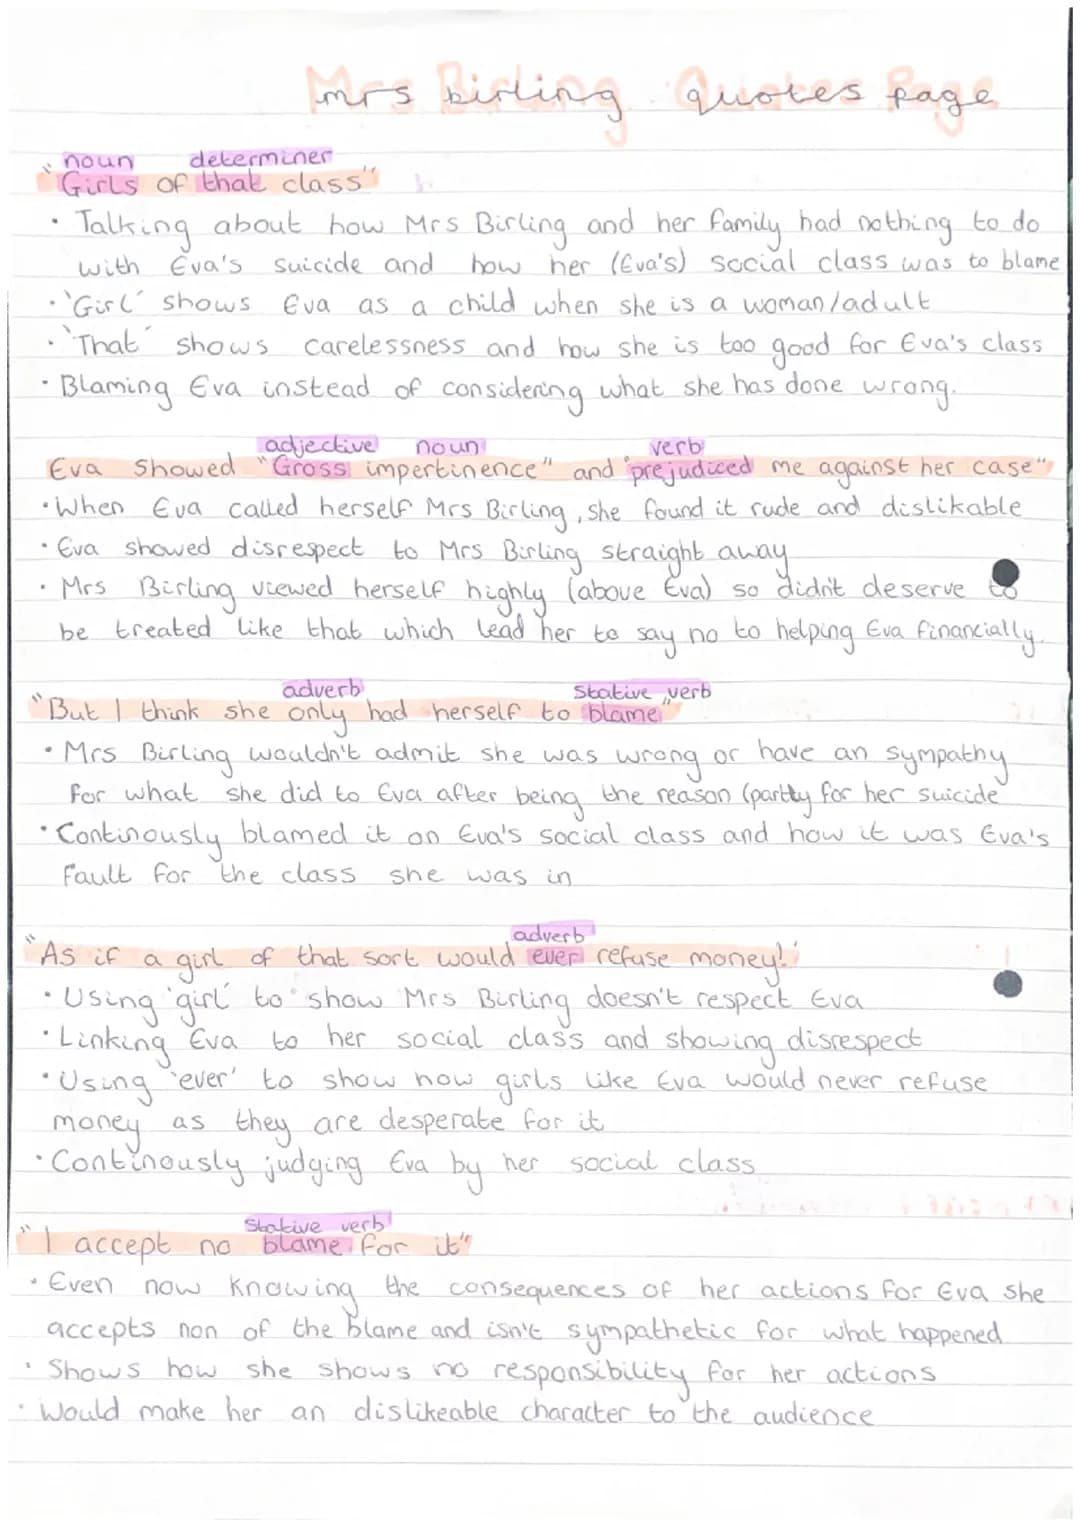 Mrs Birling Quotes Page
noun determiner
"Girls of that class"
· Talking about how Mrs Birling and her family had nothing to do
with Eva's suicide and how her (Eva's) social class was to blame
· 'Girl' shows Eva as a child when she is a woman/adult
· 'That' shows carelessness and how she is too good for Eva's class
· Blaming Eva instead of considering what she has done wrong.
adjective noun verb
Eva showed "Gross impertinence" and "prejudiced me against her case"
· When Eva called herself Mrs Birling, she found it rude and dislikable
· Eva showed disrespect to Mrs Birling straight away
· Mrs Birling viewed herself highly (above Eva) so didn't deserve to
be treated like that which lead her to say no to helping Eva financially.
adverb Stative verb
"But I think she only had herself to blame"
· Mrs Birling wouldn't admit she was wrong or have an sympathy
for what she did to Eva after being the reason (partly for her suicide
· Continously blamed it on Eva's social class and how it was Eva's
fault for the class she was in
adverb
"As if a girl of that sort would ever refuse money!'
· Using 'girl' to show Mrs Birling doesn't respect Eva
· Linking Eva to her social class and showing disrespect
· Using 'ever' to show how girls like Eva would never refuse
money as they are desperate for it
· Continously judging Eva by her social class
Stative verb
"I accept no blame for it"
· Even now knowing the consequences of her actions for Eva she
accepts non of the blame and isn't sympathetic for what happened
· Shows how she shows no responsibility for her actions
· Would make her an dislikeable character to the audience